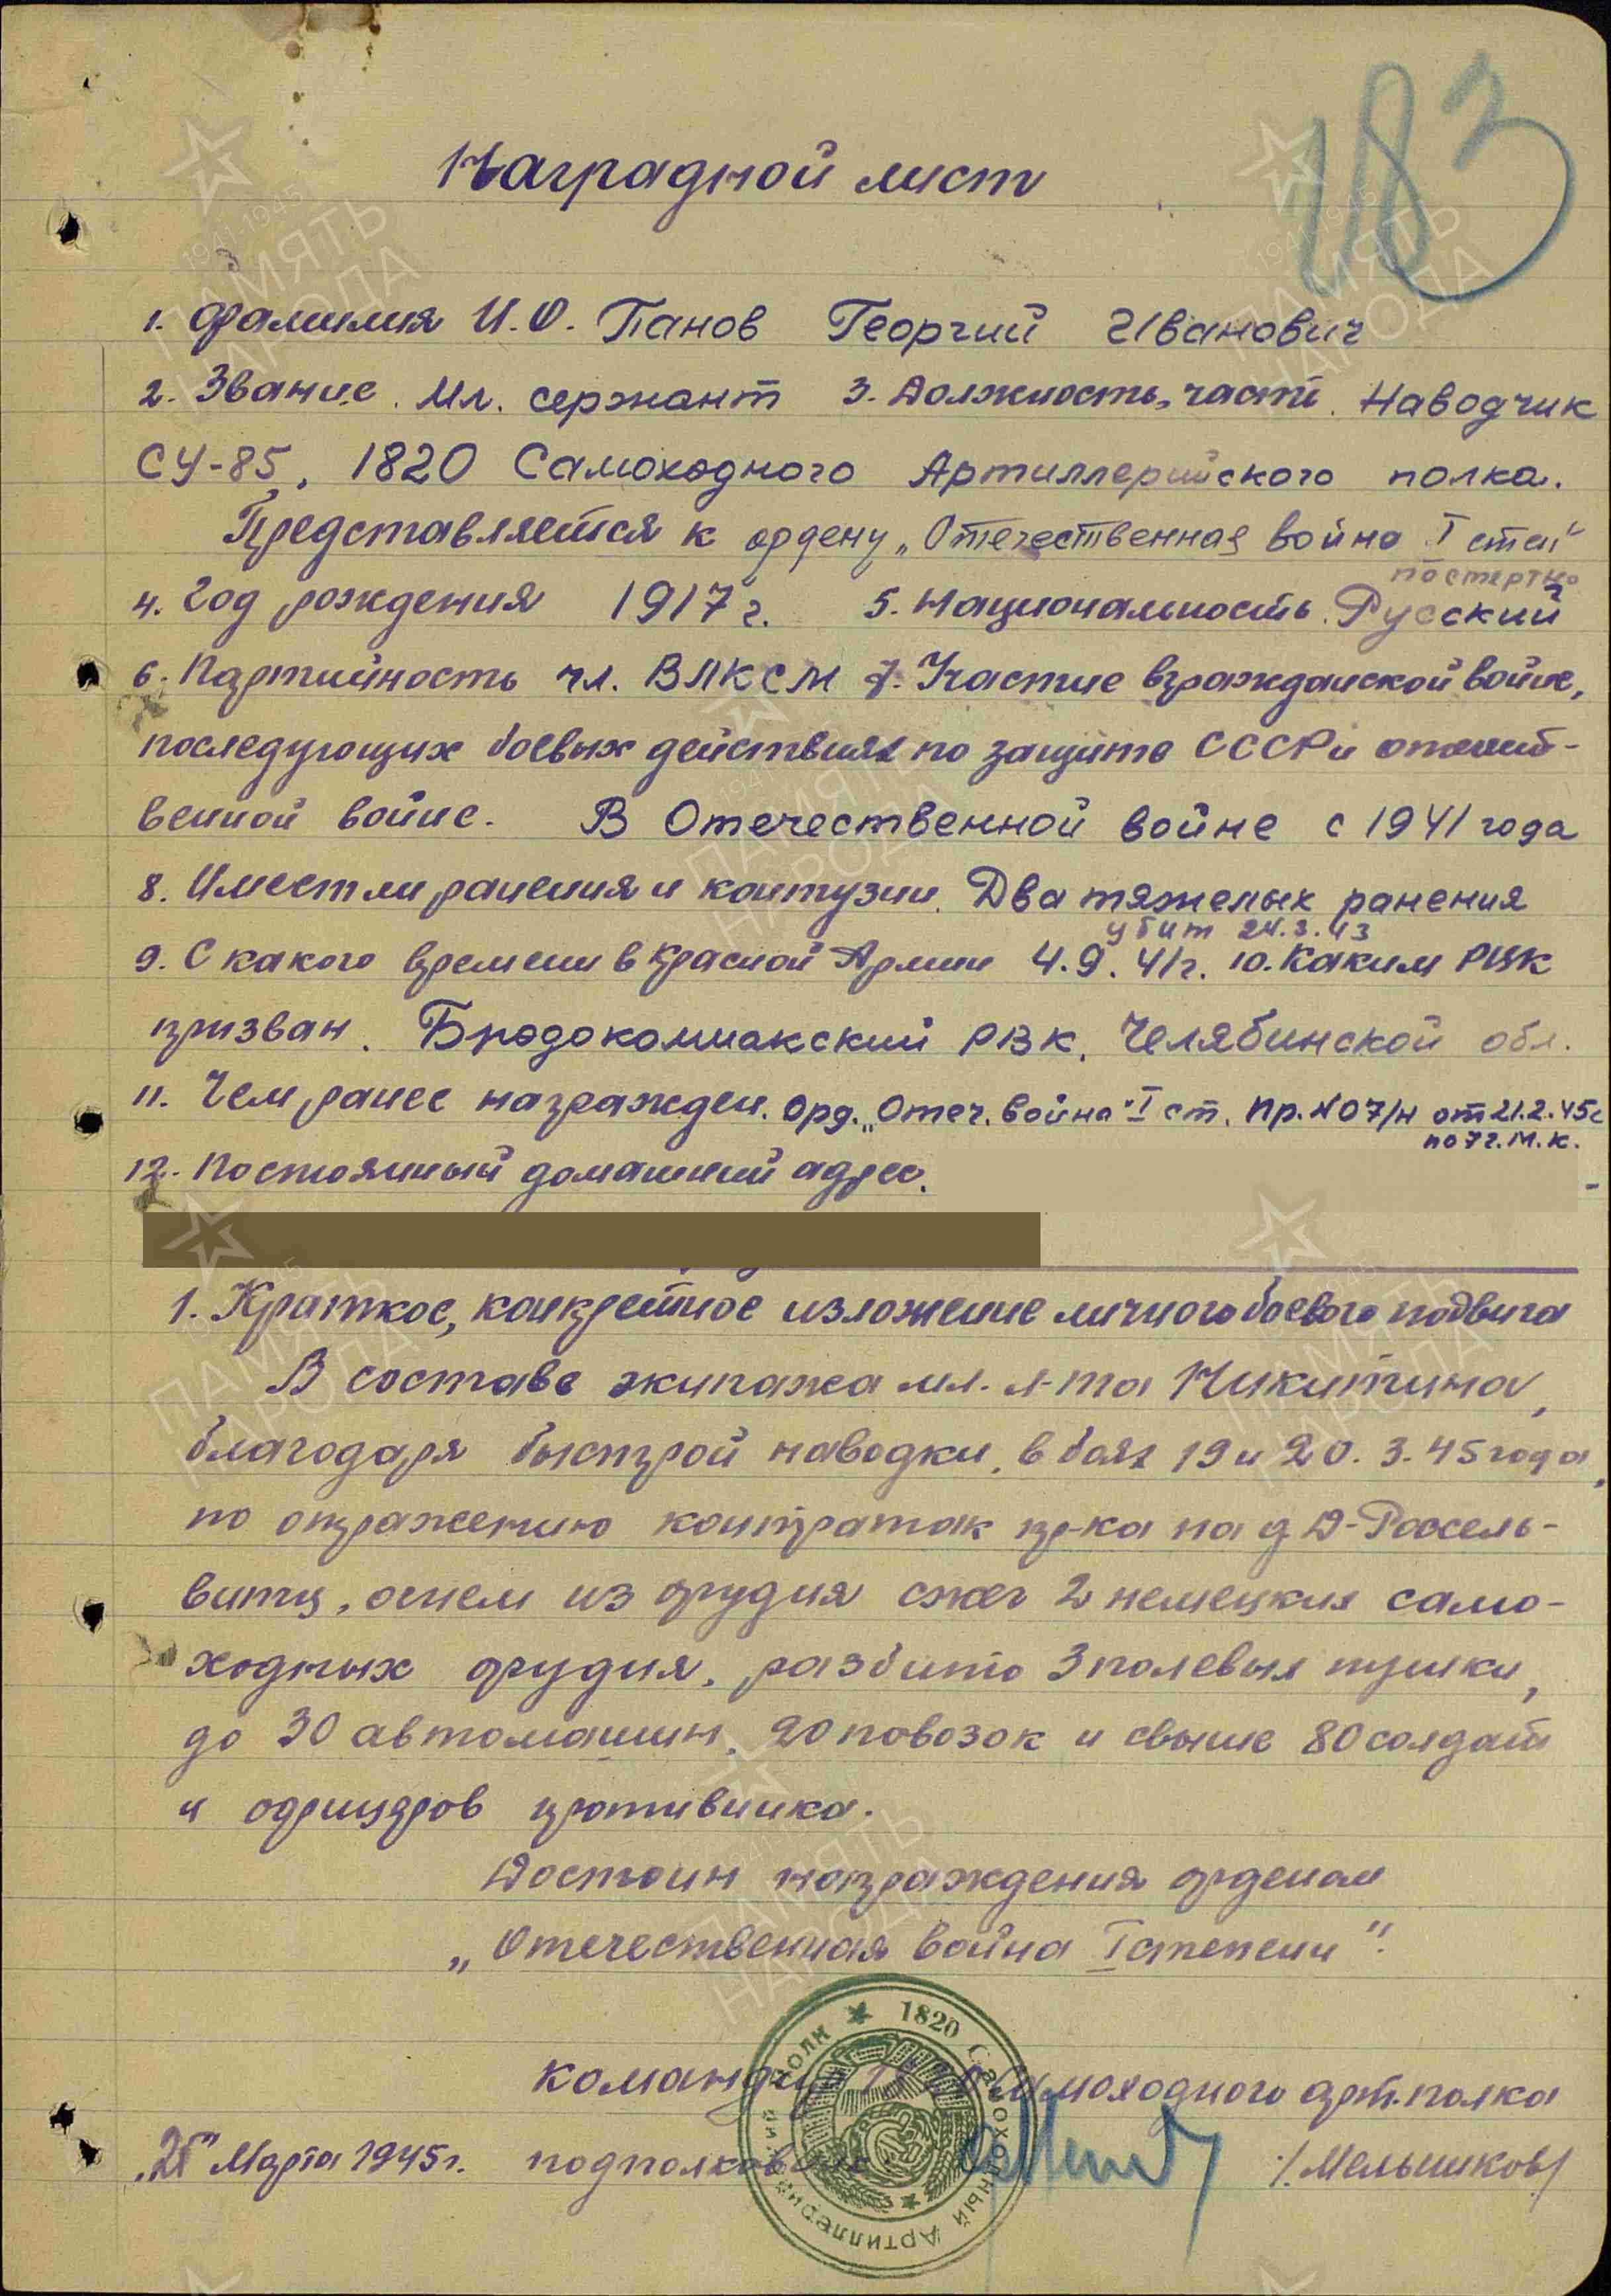 183
Наградной лист
1. Фамилия И.О. Панов Георгий Иванович
2. Звание. Мл. сержант 3. Должность, часть. Наводчик
СУ-85, 1820 Самоходного Артиллерийского полка.
Представляется к ордену „Отечественная война I степ"
постертно
4. Год рождения 1917 г. 5. Национальность. Русский
6. Партийность чл. ВЛКСМ 7. Участие в гражданской войне,
последующих боевых действиях по защите СССР и отечест-
венной войне. В Отечественной войне с 1941 года
8. Имеет ли ранения и контузии. Два тяжелых ранения
убит 24.3.43
9. С какого времени в Красной Армии 4.9.41г. 10. Каким РВК
призван. Бродоколмакский РВК, Челябинской обл.
11. Чем ранее награжден. Орд. „Отеч. война" I ст. Пр. N 07/н от 21.2.45г
по 7 г.м.к.
12. Постоянный домашний адрес.
1. Краткое, конкретное изложение личного боевого подвига
В составе экипажа мл. л-та Никитина,
благодаря быстрой наводки, в боях 19 и 20. 3. 45 года,
по отражению контратак пр-ка на д Д-Рассель-
витц, огнем из орудия сжег 2 немецких само-
ходных орудия, разбито 3 полевых пушки,
до 30 автомашин, 20 повозок и свыше 80 солдат
и офицеров противника.
Достоин награждения орденом
„Отечественная война I степени".
командир 1820 самоходного арт. полка
Марта 1945г. подполковник /Мельников/
1820 Самоходный Артиллерийский полк
ПАМЯТЬ НАРОДА
1941-1945